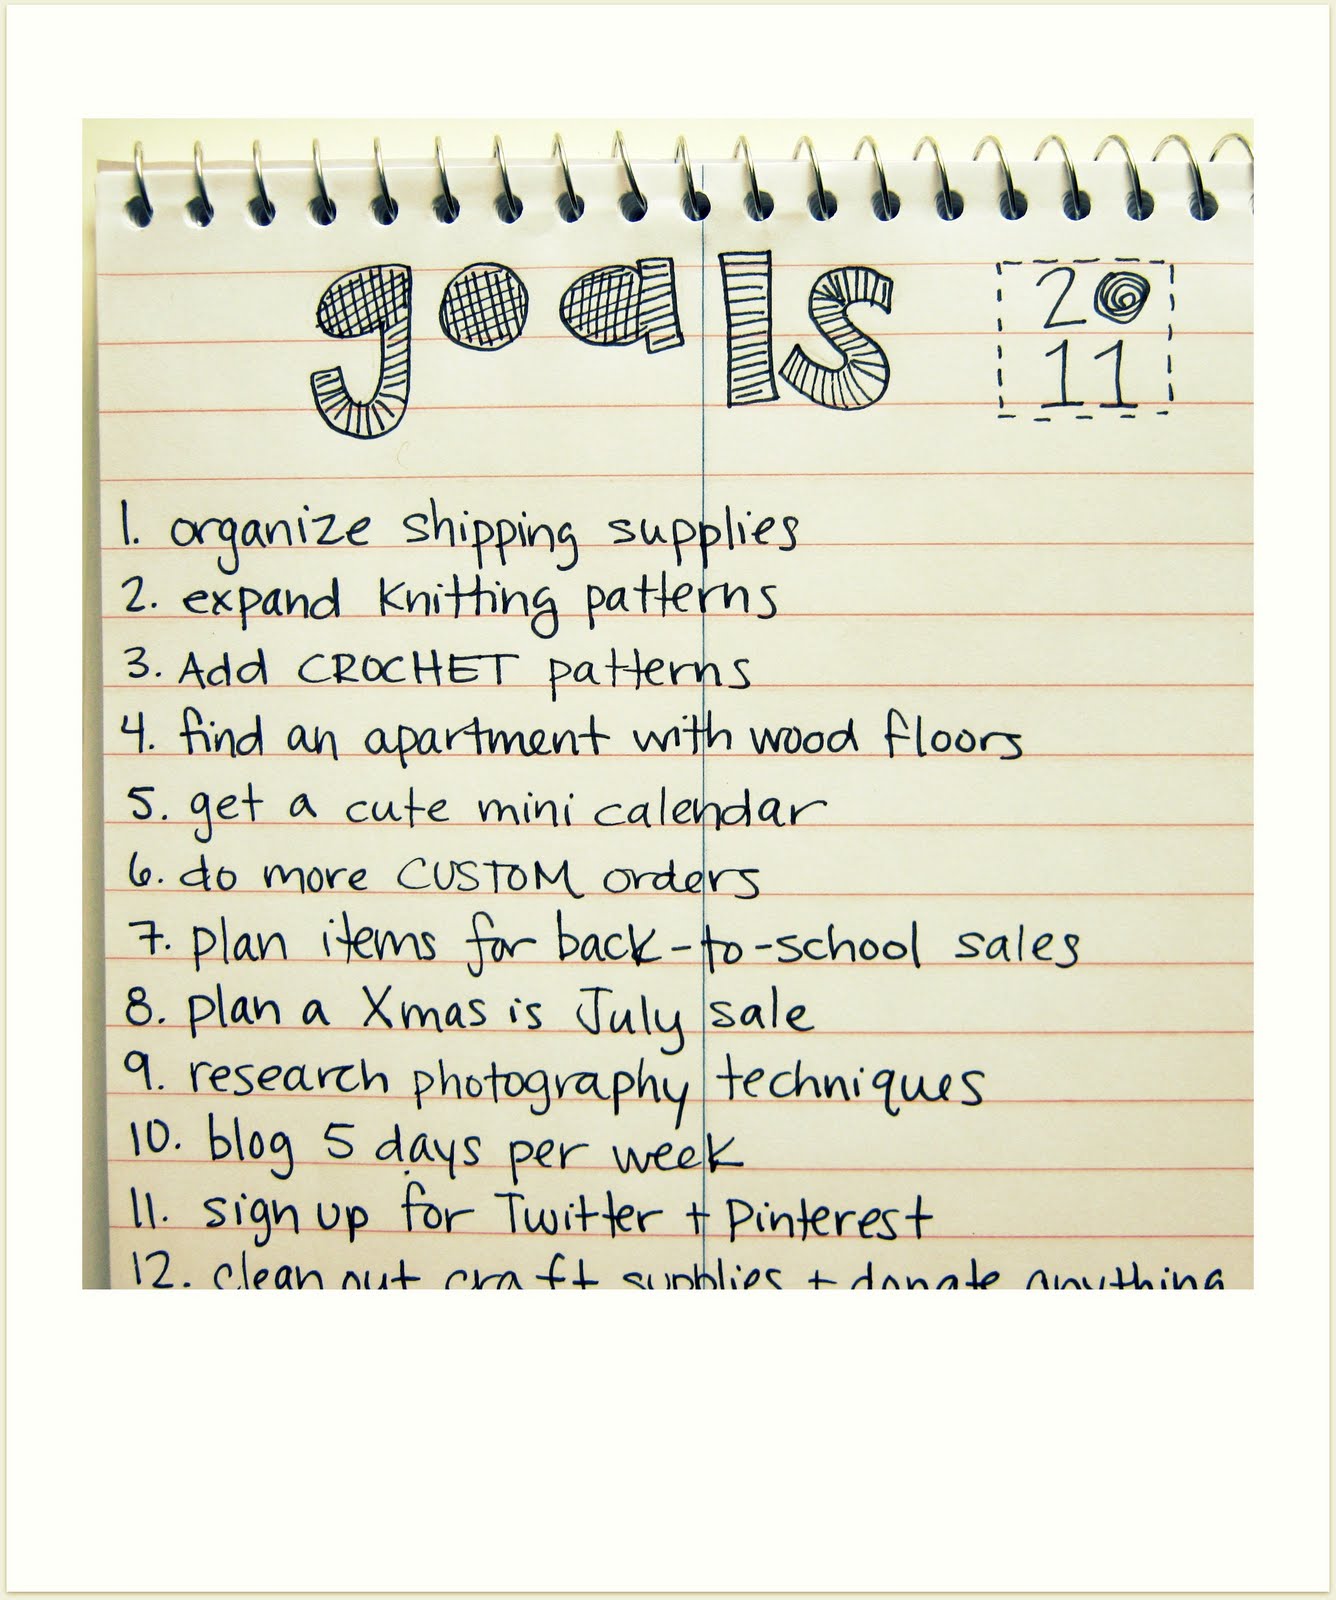 goals
20
11
1. organize shipping supplies
2. expand knitting patterns
3. Add CROCHET patterns
4. find an apartment with wood floors
5. get a cute mini calendar
6. do more CUSTOM orders
7. plan items for back-to-school sales
8. plan a Xmas is July sale
9. research photography techniques
10. blog 5 days per week
11. sign up for Twitter + Pinterest
12. clean out craft supplies + donate anything